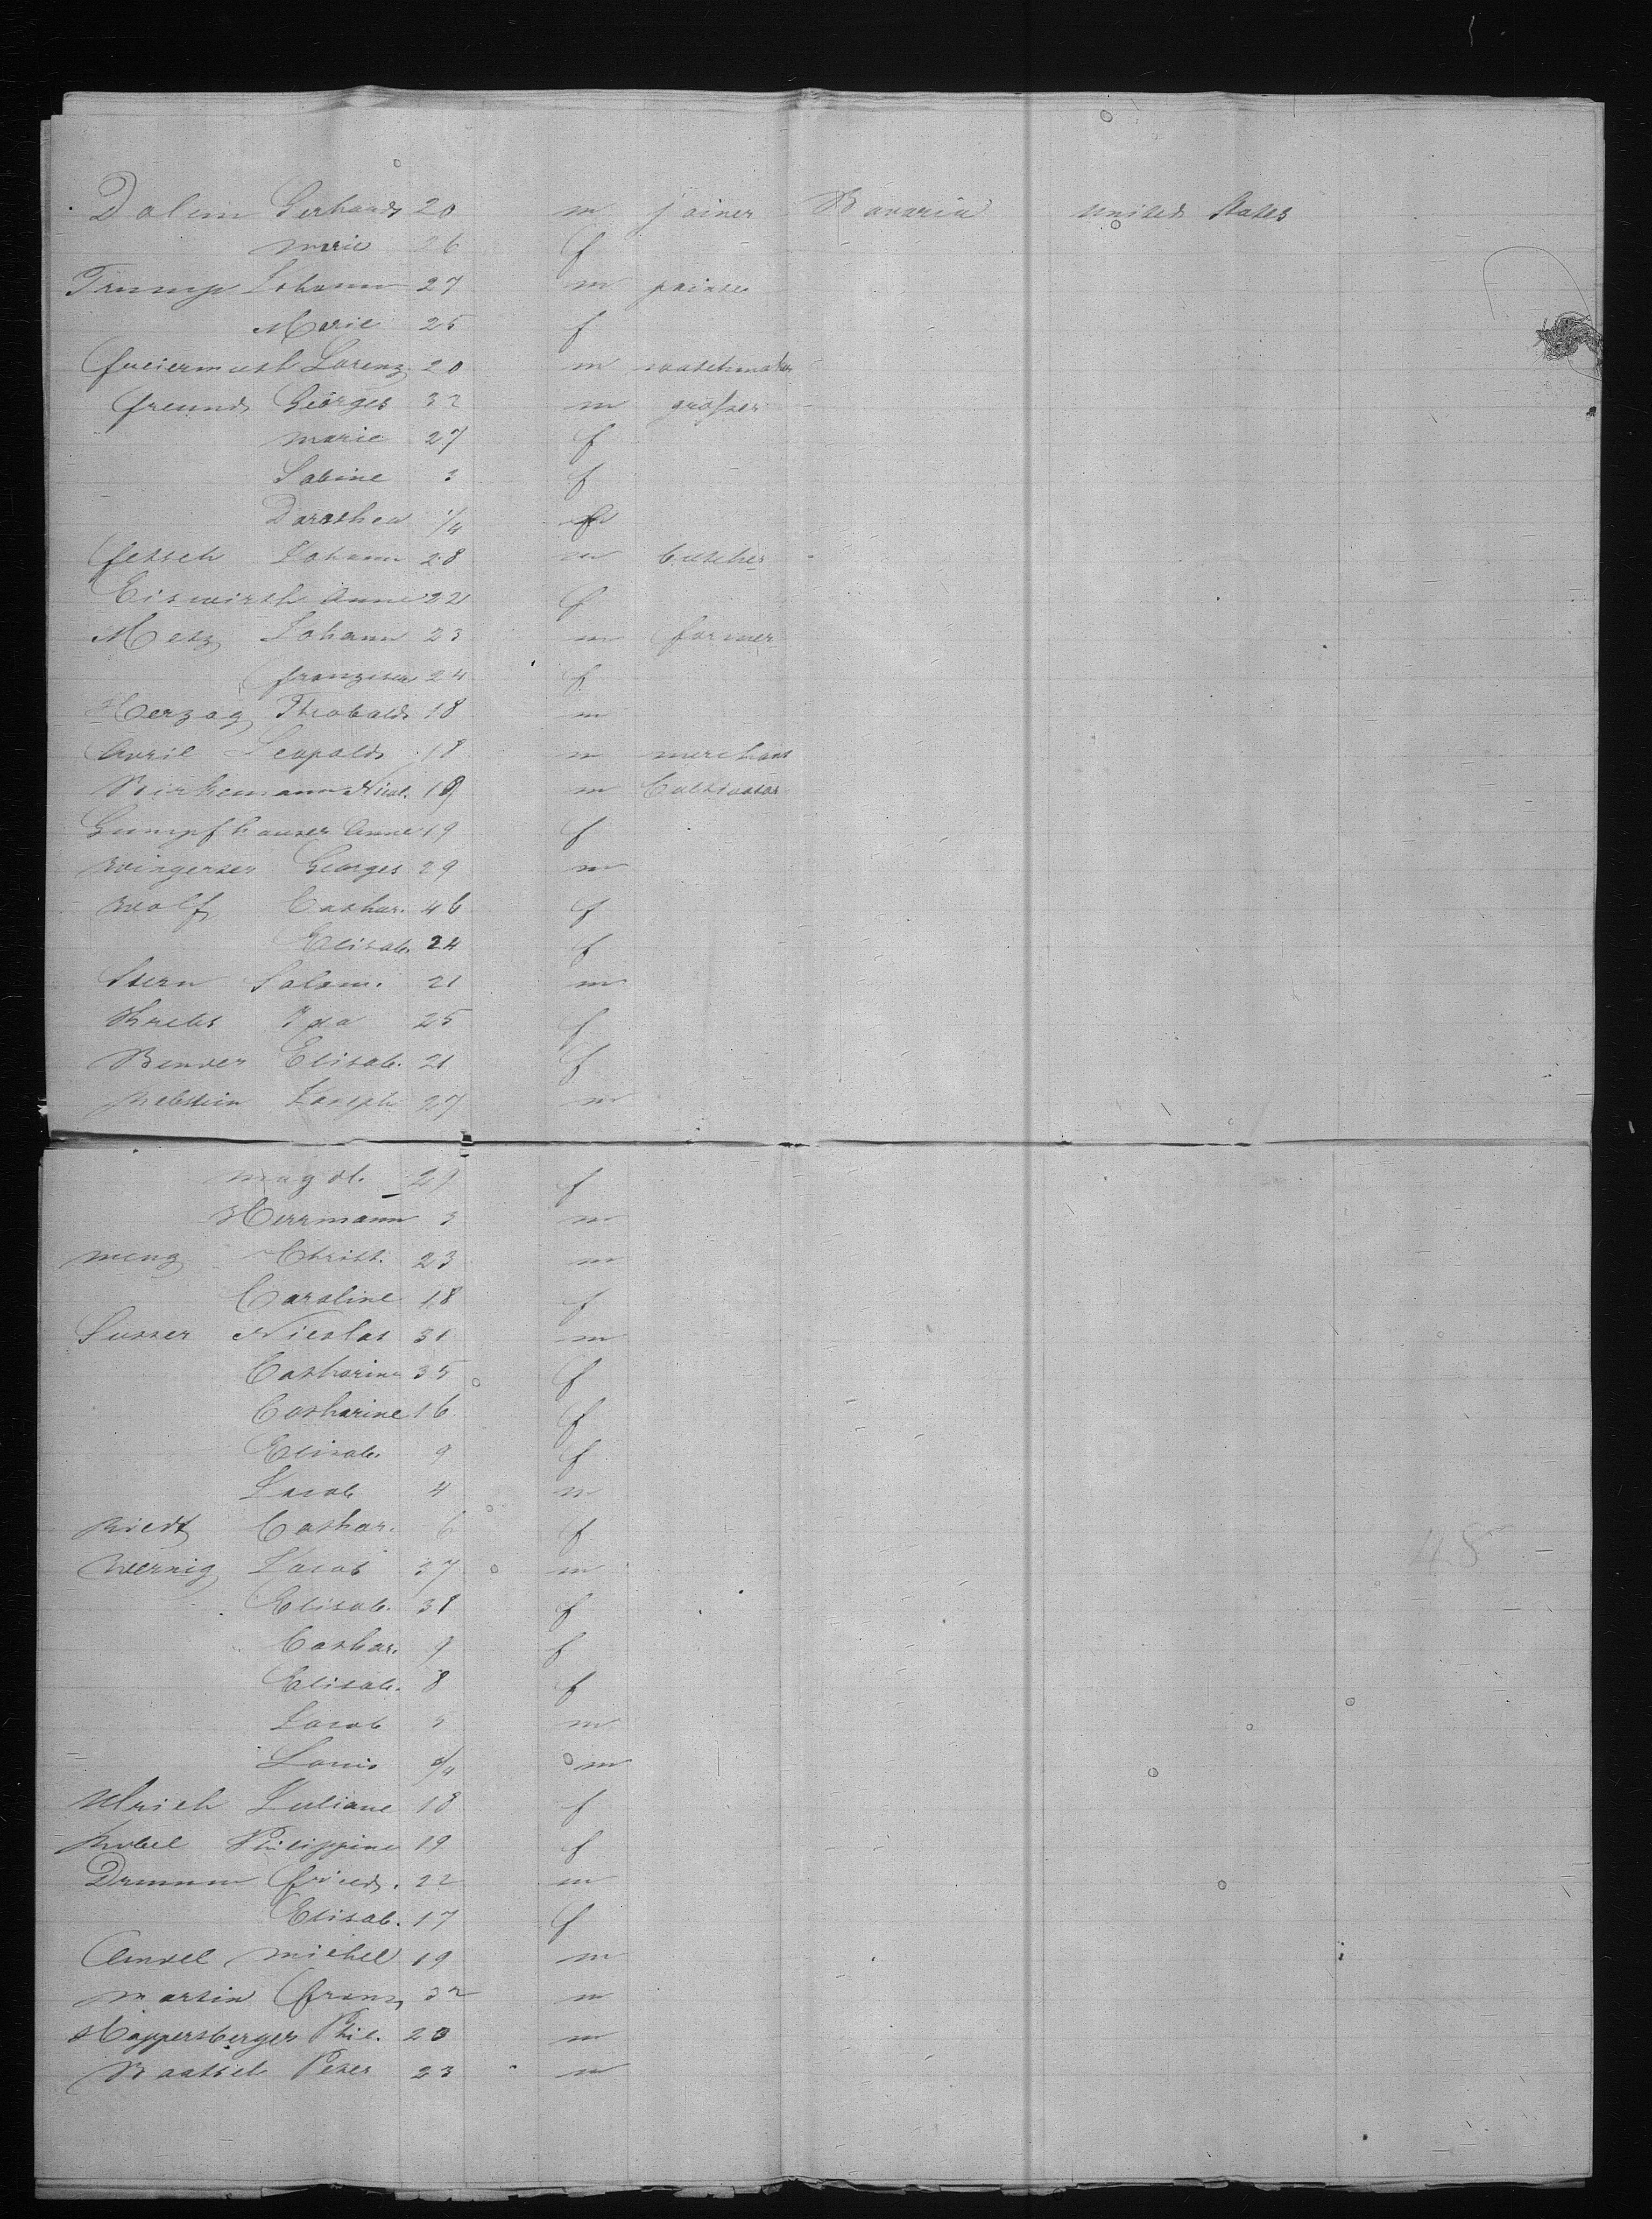 Dalem Gerhard 20 m joiner Bavaria united States
marie 26 f
Trump Johann 27 m painter
Marie 25 f
freiermuth Lorenz 20 m watchmaker
freund Georges 32 m
marie 27 f
Sabine 3 f
Dorothea 1/4 f
fetsch Johann 28 m butcher
Eiswirth Anne 22 f
Metz Johann 23 m farmer
franzisca 24 f
Herzog Theobald 18 m
Avril Leopold 18 m merchant
Birkemann Nicol. 19 m Cultivator
Gumpfhauser Anne 19 f
wingerter Georges 29 m
wolf Cathar. 46 f
Elisab. 24 f
Stern Salom. 21 m
Krebs 25 f
Bender Elisab. 21 f
Joseph 27 m
magdl. 29 f
Herrmann 3 m
meng Christ. 23 m
Caroline 18 f
Sutter Nicolas 31 m
Catharine 35 f
Catharine 16 f
Elisab. 9 f
Jacob 4 m
Cathar. 6 f
wernig Jacob 37 m
Elisab. 38 f
Cathar. 9 f
Elisab. 8 f
Jacob 5 m
Louis m
Ulrich Juliane 18 f
Philippine 19 f
Drumm fried. 22 m
Elisab. 17 f
michel 19 m
martin franz 32 m
Happersberger Phil. 20 m
Peter 23 m
48